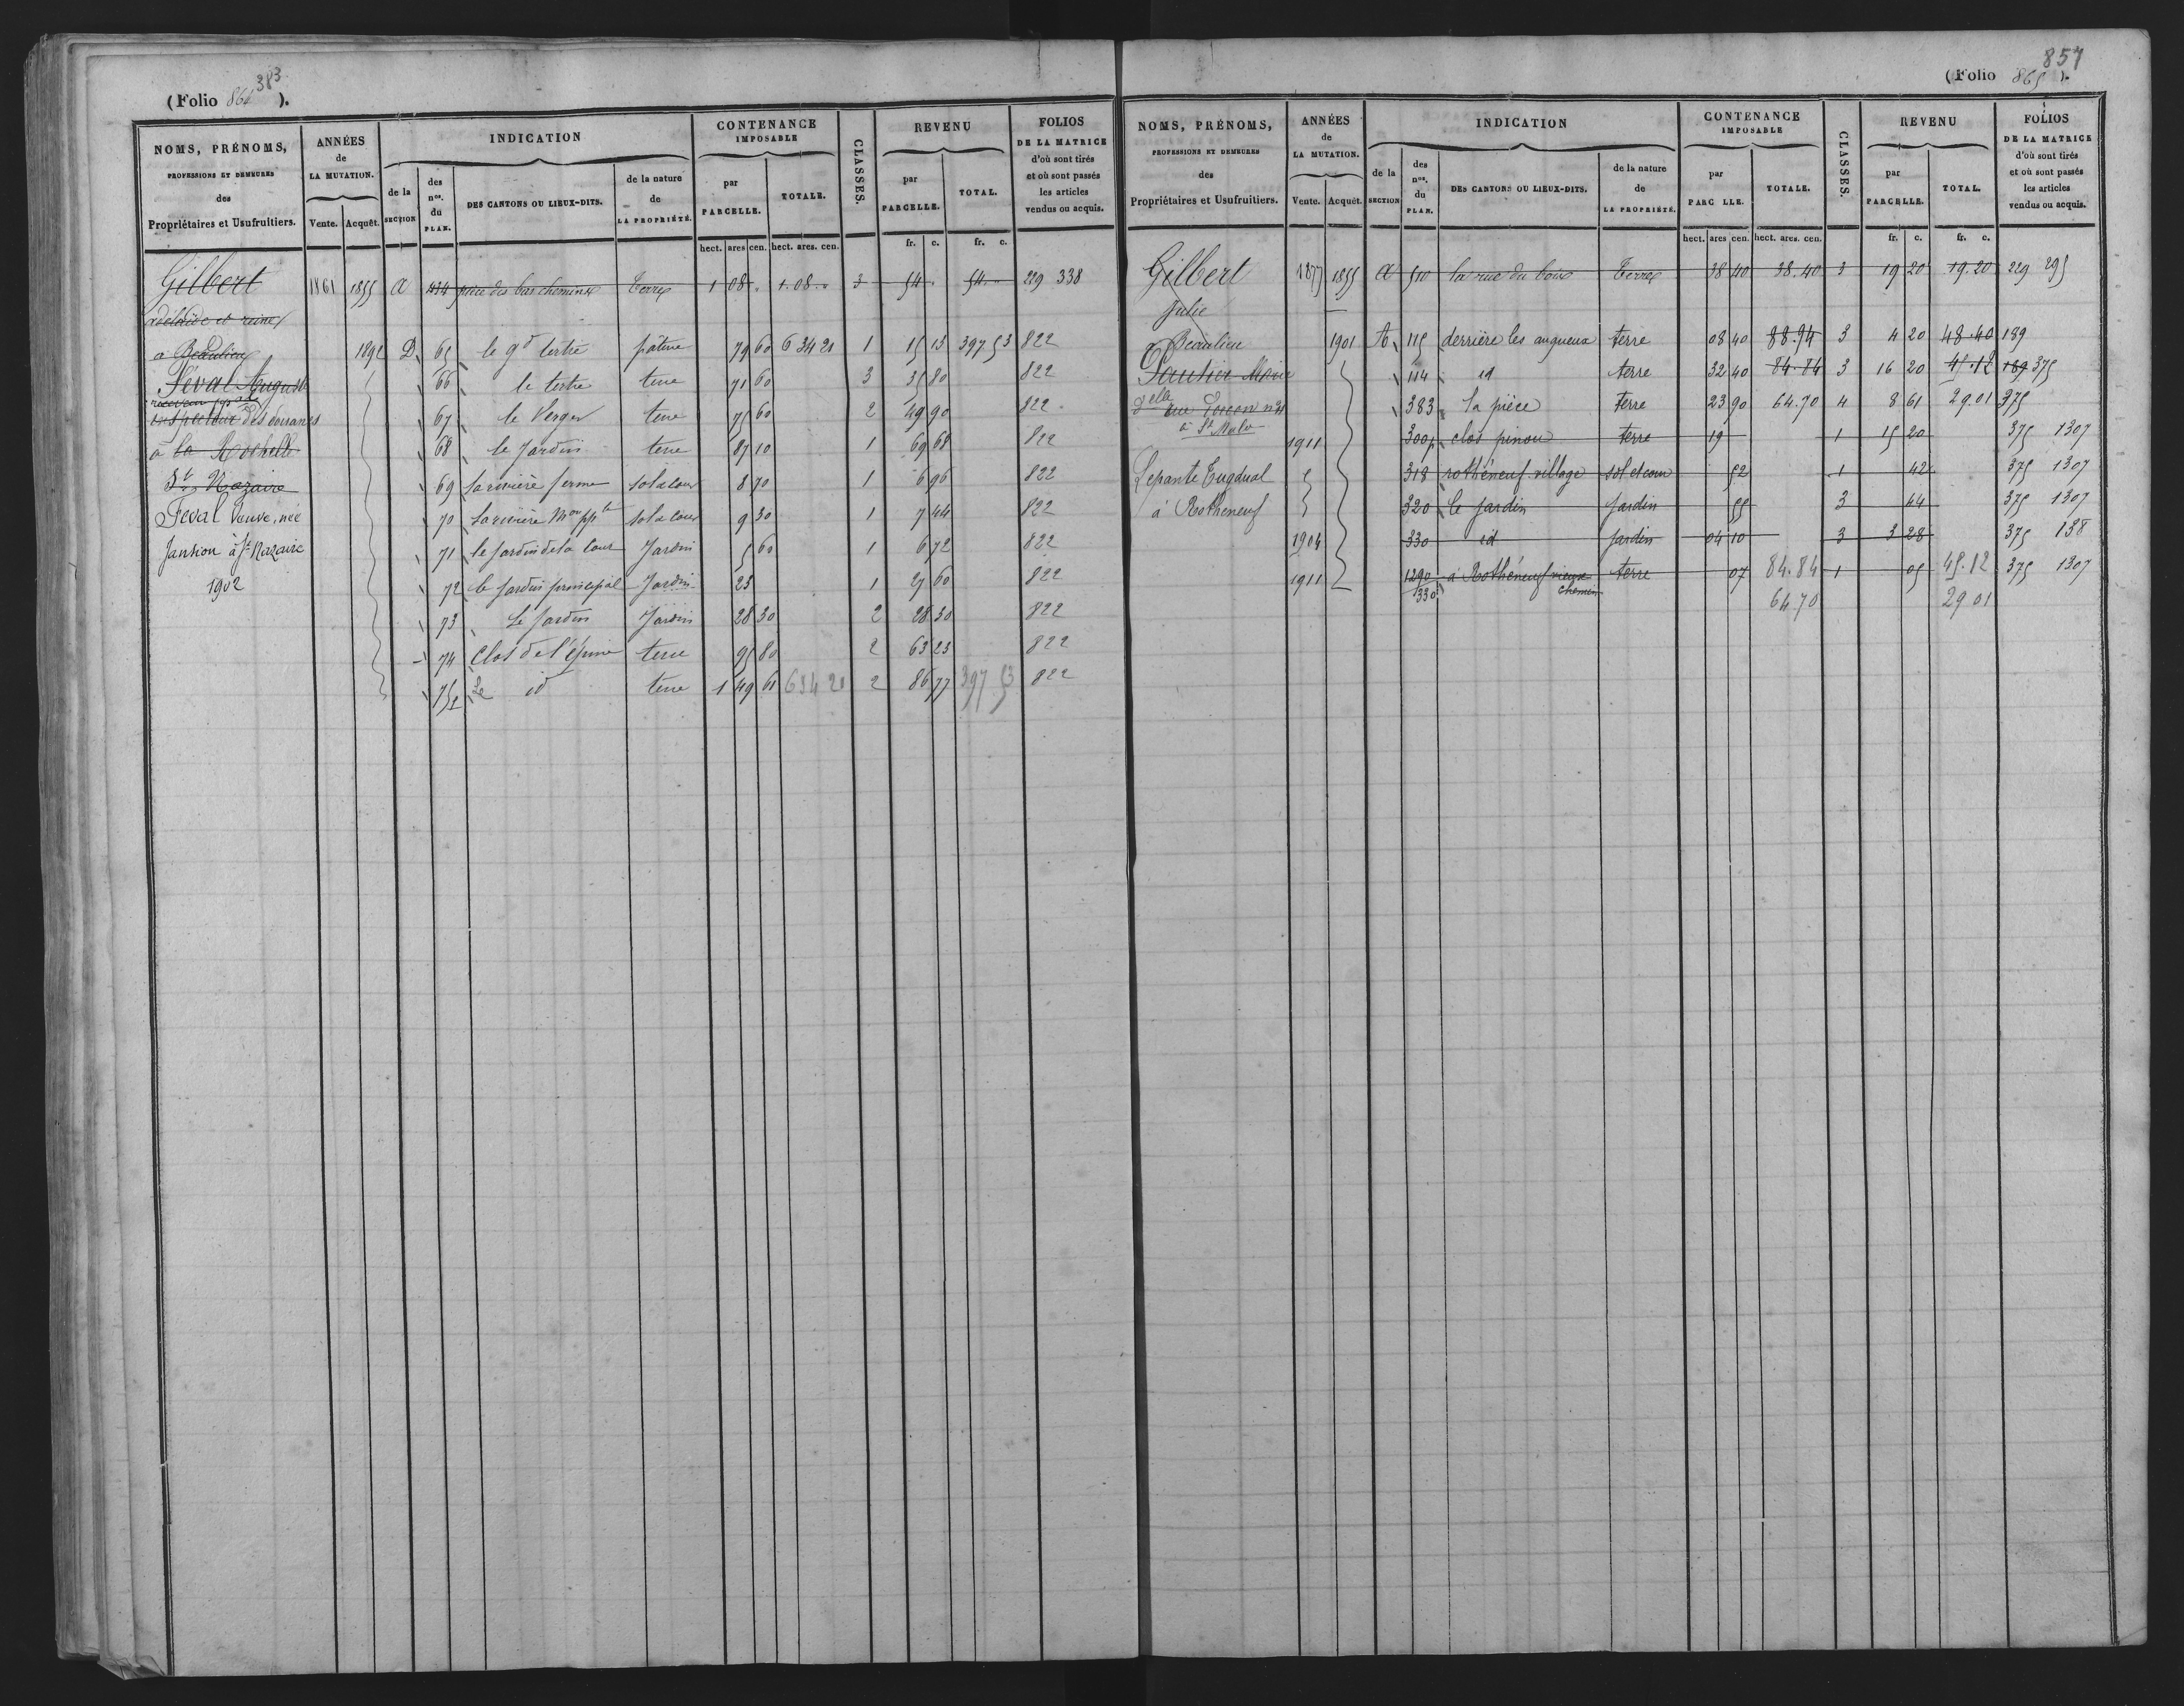 383
(Folio 864 ).
NOMS, PRÉNOMS,
PROFESSIONS ET DEMEURES
des
Propriétaires et Usufruitiers.
ANNÉES
de
LA MUTATION.
Vente. Acquêt.
INDICATION
de la
SECTION
des
nos.
du
PLAN.
DES CANTONS OU LIEUX-DITS.
de la nature
de
LA PROPRIÉTÉ.
CONTENANCE
IMPOSABLE
par
PARCELLE.
TOTALE.
hect. ares cen. hect. ares. cen.
CLASSES.
REVENU
par
PARCELLE.
TOTAL.
fr. c. fr. c.
FOLIOS
DE LA MATRICE
d'où sont tirés
et où sont passés
les articles
vendus ou acquis.
Gilbert 1861 1855 a pièce des bas chemins Terre 1 08 " 1.08." 3 54 " 54." 229 338
adélaïde et reine
a Beaulieu 1892 D 65 le gd tertre pâture 79 60 6 34 21 1 15 13 397 53 822
Féval Auguste 66 le tertre terre 71 60 3 35 80 822
inspecteur des douanes 67 le Verger terre 75 60 2 49 90 822
à la Rochelle 68 le Jardin terre 87 10 1 69 68 822
St Nazaire 69 La rivière ferme sol & cour 8 70 1 6 96 822
Feval Veuve, née 70 La rivière Mon pple sol & cour 9 30 1 7 44 822
Jansion à St Nazaire 71 le jardin de la Cour Jardin 5 60 1 6 72 822
1902 72 le jardin principal Jardin 23 1 27 60 822
73 Le Jardin Jardin 28 30 2 28 30 822
74 Clos de l'épine terre 95 80 2 63 23 822
75 Le id terre 1 49 61 634 21 2 86 77 397 53 822
857
(Folio 865 ).
NOMS, PRÉNOMS,
PROFESSIONS ET DEMEURES
des
Propriétaires et Usufruitiers.
ANNÉES
de
LA MUTATION.
Vente. Acquêt.
INDICATION
de la
SECTION
des
nos.
du
PLAN.
DES CANTONS OU LIEUX-DITS.
de la nature
de
LA PROPRIÉTÉ.
CONTENANCE
IMPOSABLE
par
PARC LLE.
TOTALE.
hect. ares cen. hect. ares. cen.
CLASSES.
REVENU
par
PARCELLE.
TOTAL.
fr. c. fr. c.
FOLIOS
DE LA MATRICE
d'où sont tirés
et où sont passés
les articles
vendus ou acquis.
Gilbert 1877 1855 a 510 la rue du bois Terre 38 40 38.40 3 19 20 19.20 229 295
Julie
a Beaulieu 1901 A 115 derrière les angneux terre 08 40 88.94 3 4 20 48.40 189
Marie 114 id terre 32 40 84.84 3 16 20 45.12 189 375
delle rue n°4 383 la pièce terre 23 90 64.70 4 8 61 29.01 375
à St Malo
1911 300p clos pinou terre 19 1 15 20 375 1307
Lepante Tugdual 318 rothéneuf village sol et cour 52 1 42 375 1307
à Rotheneuf 320 le jardin jardin 55 3 44 375 1307
1904 330 id jardin 04 10 3 3 28 375 138
1911 1290 à Rothéneuf vieux terre 07 84.84 1 05 45.12 375 1307
330 chemin 64.70 29 01